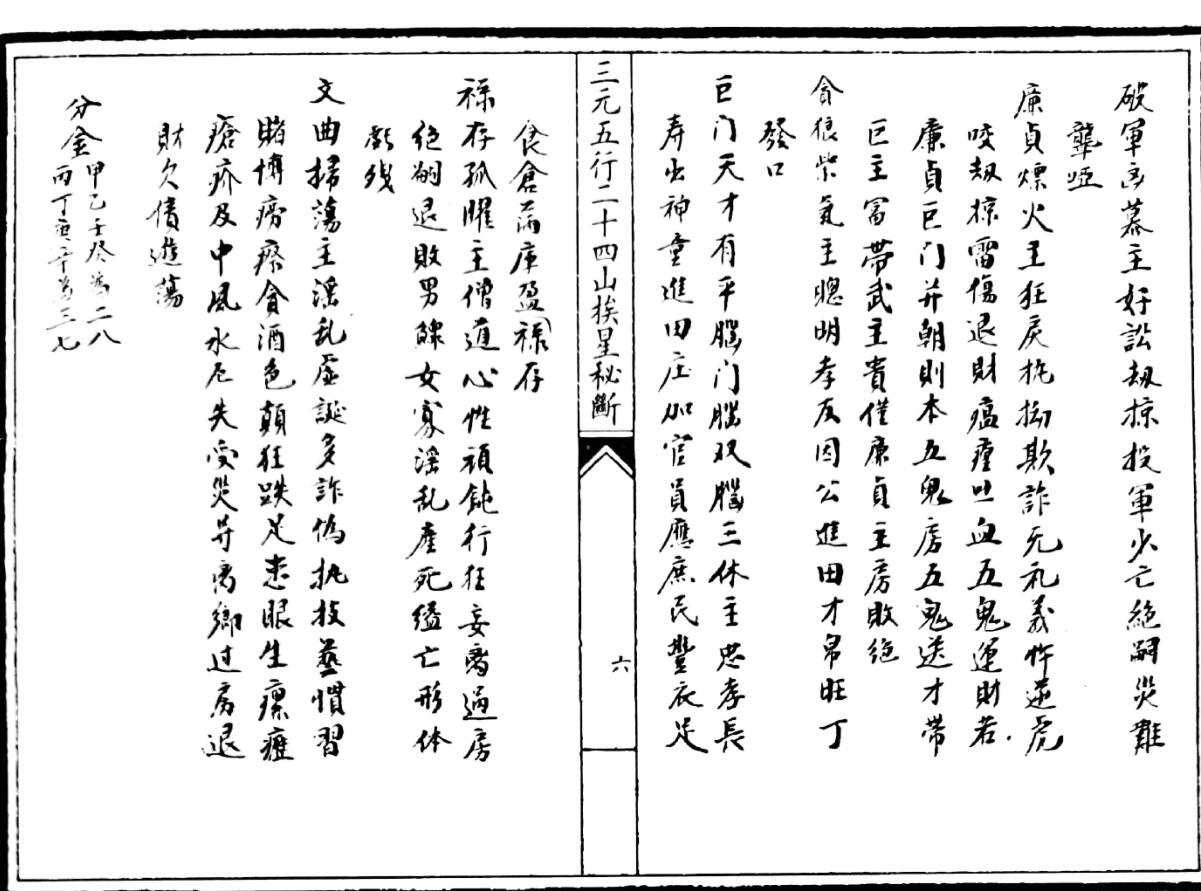 破军凶暮主好訟劫掠投軍少亡絕嗣災難
聾啞
廉貞燥火主狂戾拖拗欺詐无礼義忤逆虎
咬劫掠雷傷退財瘟㾮吐血五鬼運財若
廉貞巨门并朝則本五鬼房五鬼送才帶
巨主冨帶武主貴僅廉貞主房敗絕
貪狼紫氣主聰明孝友因公進田才帛旺丁
發口
巨门天才有平腦门腦双腦三体主忠孝長
寿出神童進田庄加官員應庶民豐衣足
三元五行二十四山挨星秘斷
六
食倉滿庫盈禄存
禄存孤曜主僧道心性頑鈍行狂妄离過房
絕嗣退敗男鰥女寡淫乱產死縊亡形体
虧残
文曲掃蕩主淫乱虛誕多詐偽执技藝慣習
賭博癆瘵貪酒色顛狂跌足患眼生瘰癧
瘡疥及中風水厄失受災并离鄉过房退
財欠債遊蕩
分金甲乙壬癸為二八
丙丁庚辛為三七